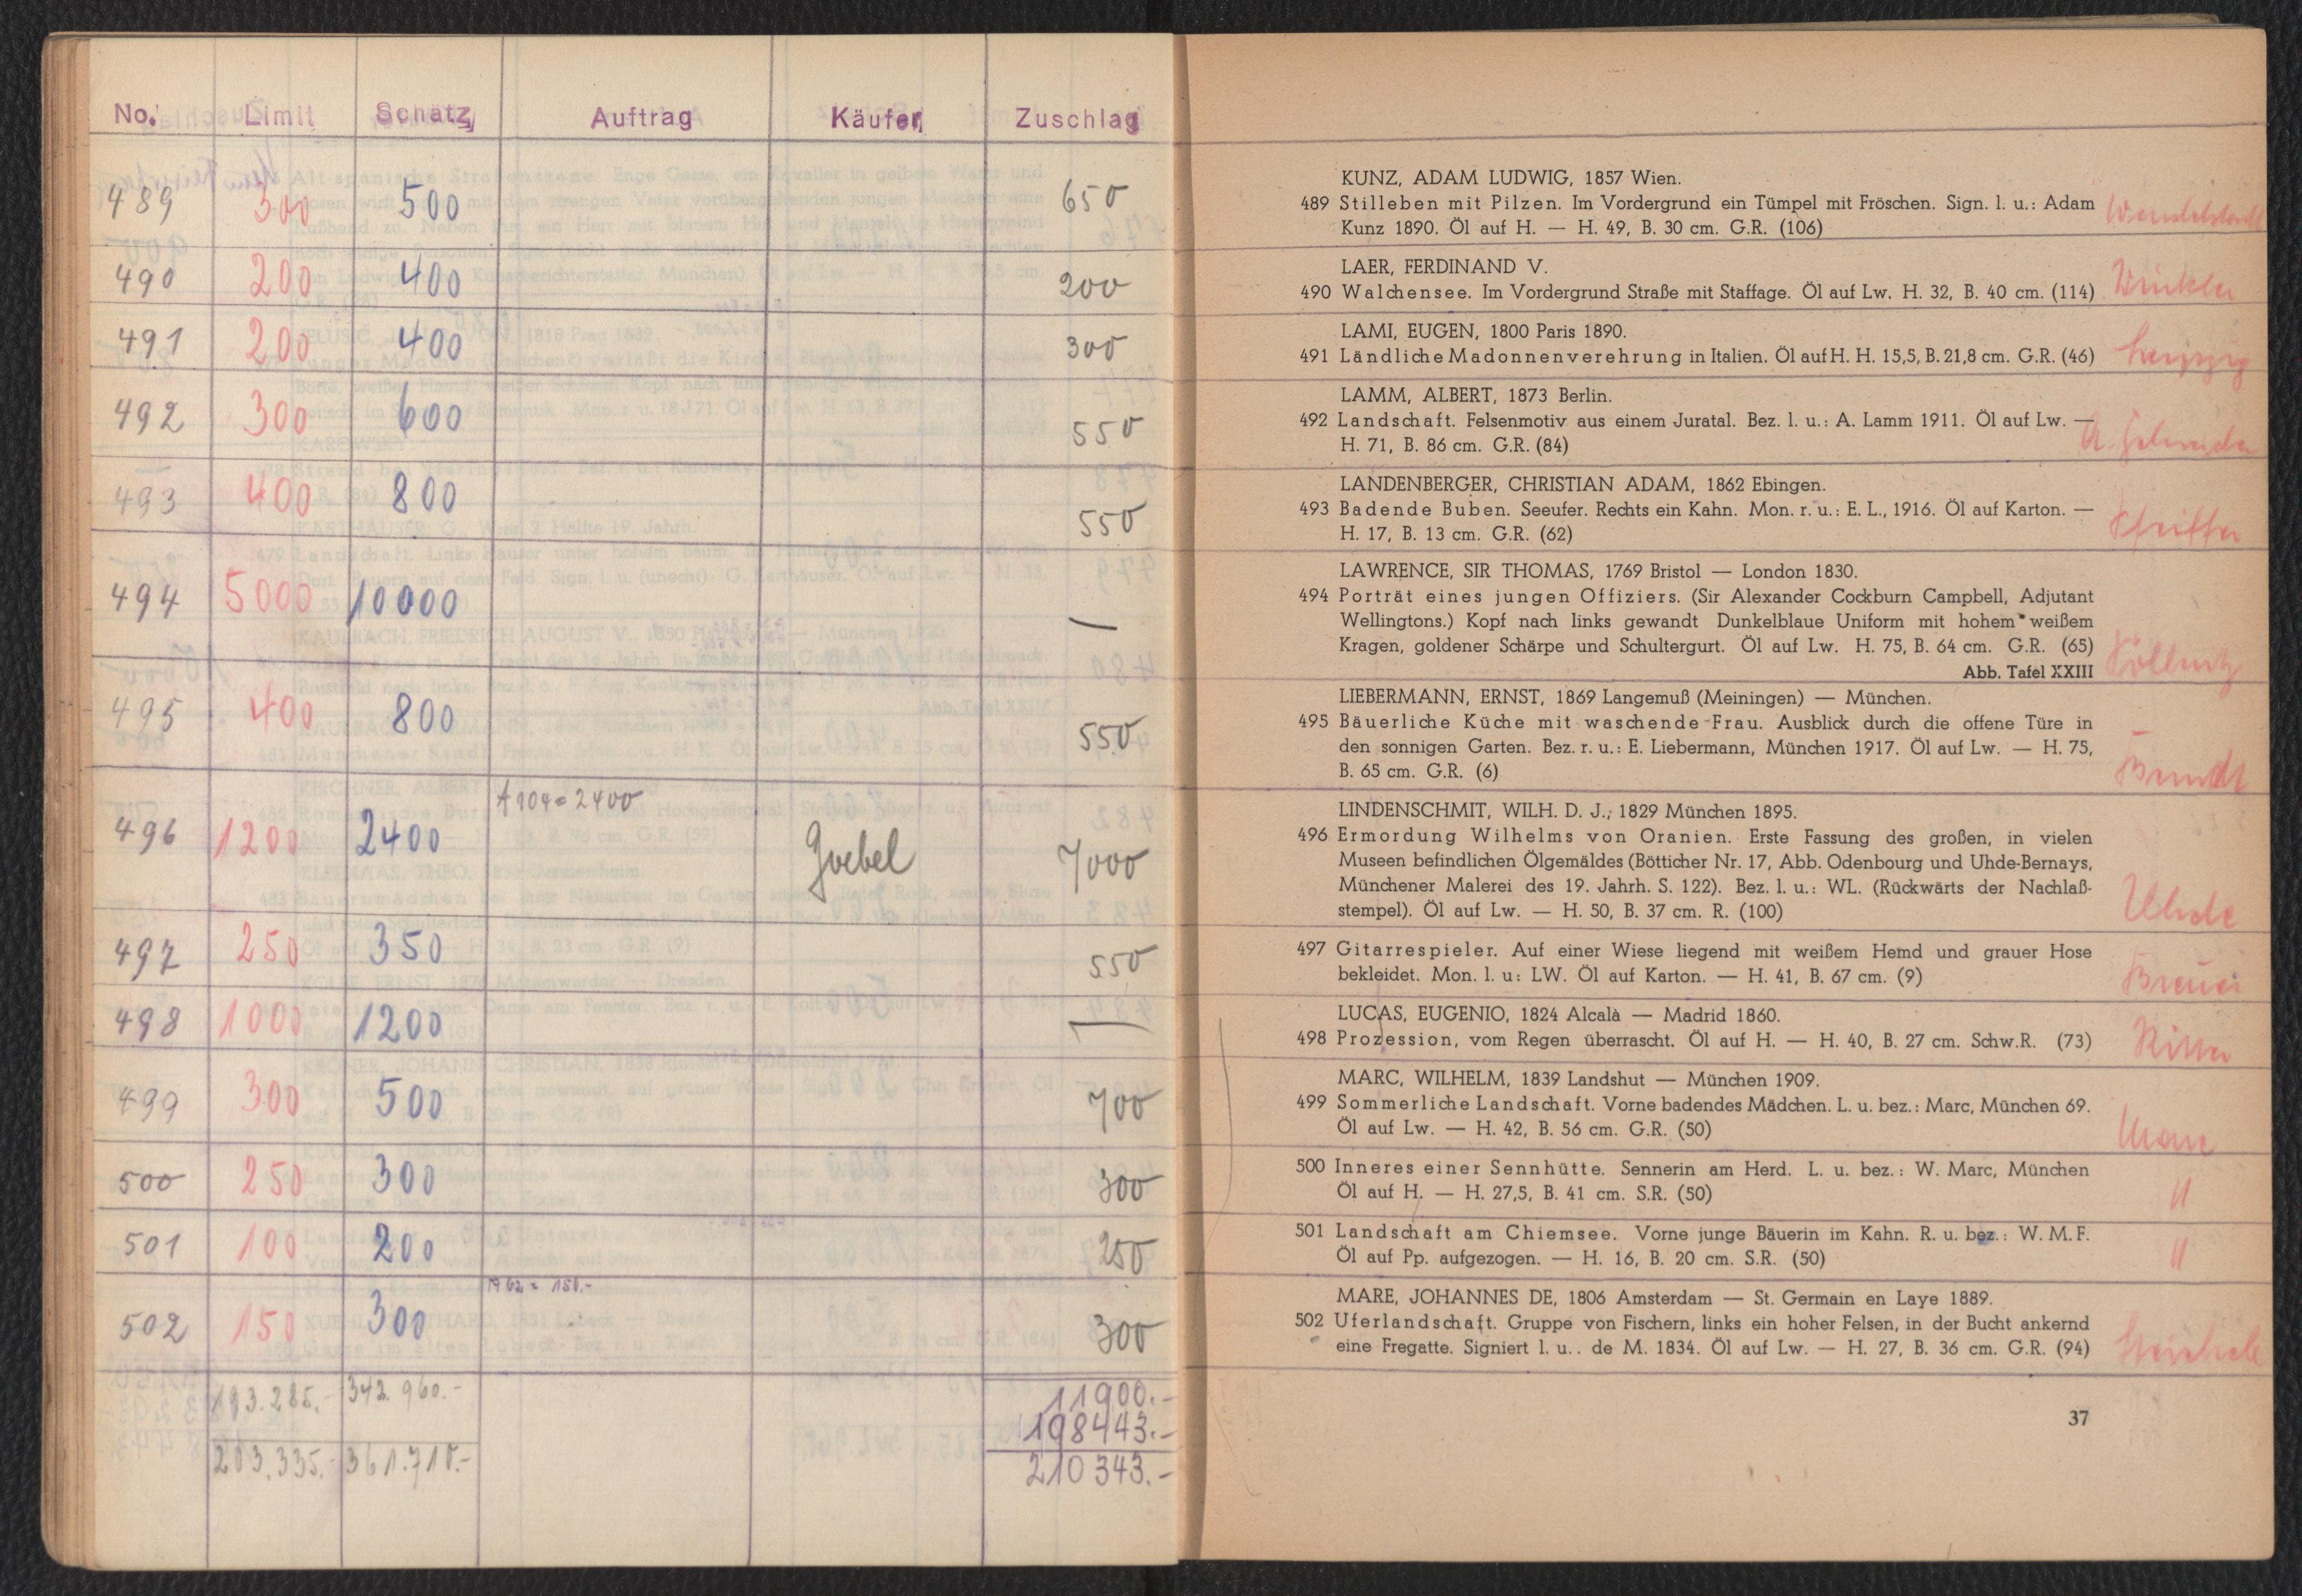 No. Limit Schätz Auftrag Käufer Zuschlag
489 300 500 650
490 200 400 200
491 200 400 300
492 300 600 550
493 400 800 550
494 5000 10000 —
495 400 800 550
A 104 = 2400
496 1200 2400 Goebel 7000
497 250 350 550
498 1000 1200 —
499 300 500 700
500 250 300 300
501 100 200 250
A 62 = 150.-
502 150 300 300
193.285.- 342.960.- 11900.-
198443.-
203.335.- 361.710.- 210343.-
KUNZ, ADAM LUDWIG, 1857 Wien.
489 Stilleben mit Pilzen. Im Vordergrund ein Tümpel mit Fröschen. Sign. l. u.: Adam
Kunz 1890. Öl auf H. — H. 49, B. 30 cm. G.R. (106)
LAER, FERDINAND V.
490 Walchensee. Im Vordergrund Straße mit Staffage. Öl auf Lw. H. 32, B. 40 cm. (114) Winkler
LAMI, EUGEN, 1800 Paris 1890.
491 Ländliche Madonnenverehrung in Italien. Öl auf H. H. 15,5, B. 21,8 cm. G.R. (46) Leipzig
LAMM, ALBERT, 1873 Berlin.
492 Landschaft. Felsenmotiv aus einem Juratal. Bez. l. u.: A. Lamm 1911. Öl auf Lw. —
H. 71, B. 86 cm. G.R. (84)
LANDENBERGER, CHRISTIAN ADAM, 1862 Ebingen.
493 Badende Buben. Seeufer. Rechts ein Kahn. Mon. r. u.: E. L., 1916. Öl auf Karton. —
H. 17, B. 13 cm. G.R. (62)
LAWRENCE, SIR THOMAS, 1769 Bristol — London 1830.
494 Porträt eines jungen Offiziers. (Sir Alexander Cockburn Campbell, Adjutant
Wellingtons.) Kopf nach links gewandt Dunkelblaue Uniform mit hohem weißem
Kragen, goldener Schärpe und Schultergurt. Öl auf Lw. H. 75, B. 64 cm. G.R. (65)
Abb. Tafel XXIII
LIEBERMANN, ERNST, 1869 Langemuß (Meiningen) — München.
495 Bäuerliche Küche mit waschende Frau. Ausblick durch die offene Türe in
den sonnigen Garten. Bez. r. u.: E. Liebermann, München 1917. Öl auf Lw. — H. 75,
B. 65 cm. G.R. (6)
LINDENSCHMIT, WILH. D. J., 1829 München 1895.
496 Ermordung Wilhelms von Oranien. Erste Fassung des großen, in vielen
Museen befindlichen Ölgemäldes (Bötticher Nr. 17, Abb. Odenbourg und Uhde-Bernays,
Münchener Malerei des 19. Jahrh. S. 122). Bez. l. u.: WL. (Rückwärts der Nachlaß-
stempel). Öl auf Lw. — H. 50, B. 37 cm. R. (100) Uhde
497 Gitarrespieler. Auf einer Wiese liegend mit weißem Hemd und grauer Hose
bekleidet. Mon. l. u: LW. Öl auf Karton. — H. 41, B. 67 cm. (9)
LUCAS, EUGENIO, 1824 Alcalà — Madrid 1860.
498 Prozession, vom Regen überrascht. Öl auf H. — H. 40, B. 27 cm. Schw.R. (73)
MARC, WILHELM, 1839 Landshut — München 1909.
499 Sommerliche Landschaft. Vorne badendes Mädchen. L. u. bez.: Marc, München 69.
Öl auf Lw. — H. 42, B. 56 cm. G.R. (50) Marc
500 Inneres einer Sennhütte. Sennerin am Herd. L. u. bez.: W. Marc, München
Öl auf H. — H. 27,5, B. 41 cm. S.R. (50) "
501 Landschaft am Chiemsee. Vorne junge Bäuerin im Kahn. R. u. bez.: W. M. F.
Öl auf Pp. aufgezogen. — H. 16, B. 20 cm. S.R. (50) "
MARE, JOHANNES DE, 1806 Amsterdam — St. Germain en Laye 1889.
502 Uferlandschaft. Gruppe von Fischern, links ein hoher Felsen, in der Bucht ankernd
eine Fregatte. Signiert l. u.. de M. 1834. Öl auf Lw. — H. 27, B. 36 cm. G.R. (94)
37